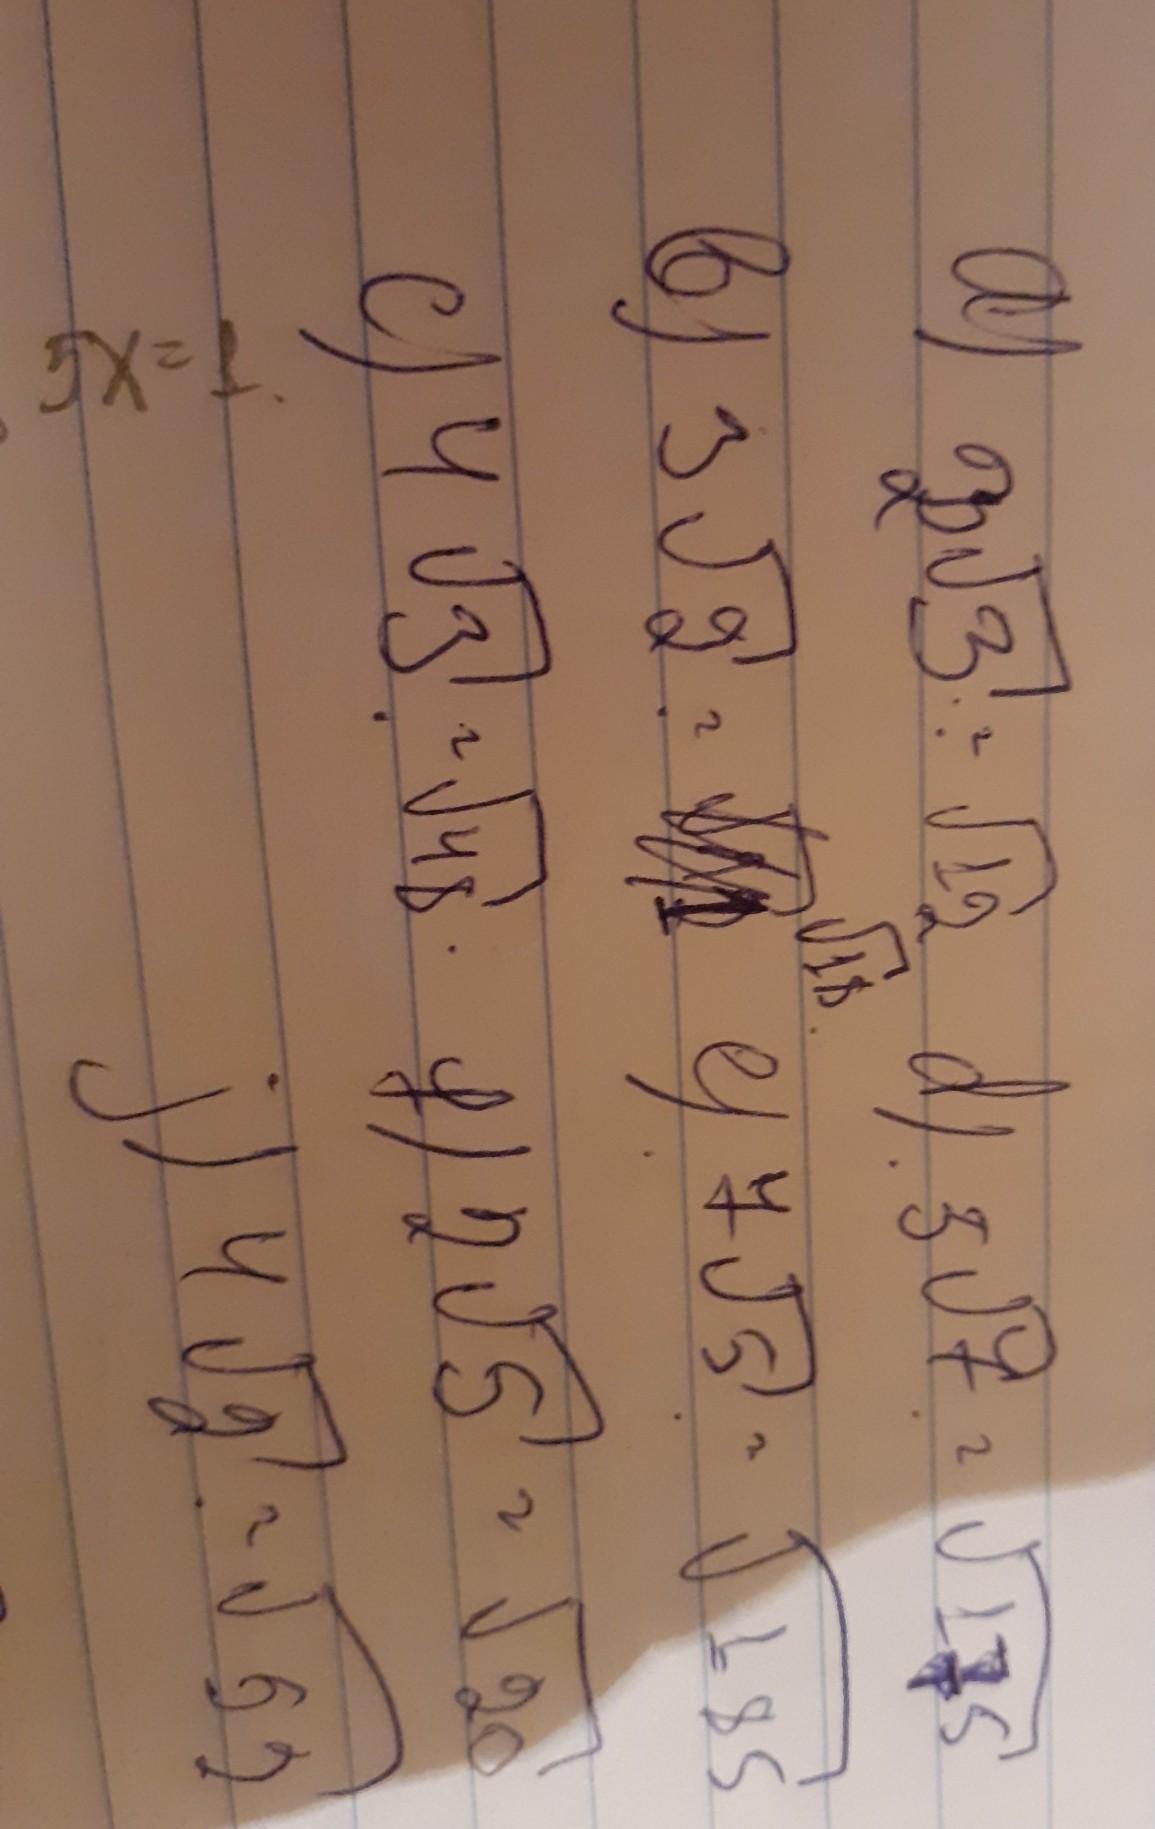 a) 2√3 = √12 d) 5√7 = √175
b) 3√2 = √18. e) 7√5 = √185
c) 4√3 = √48. f) 2√5 = √20
j) 4√2 = √52
5x=1.